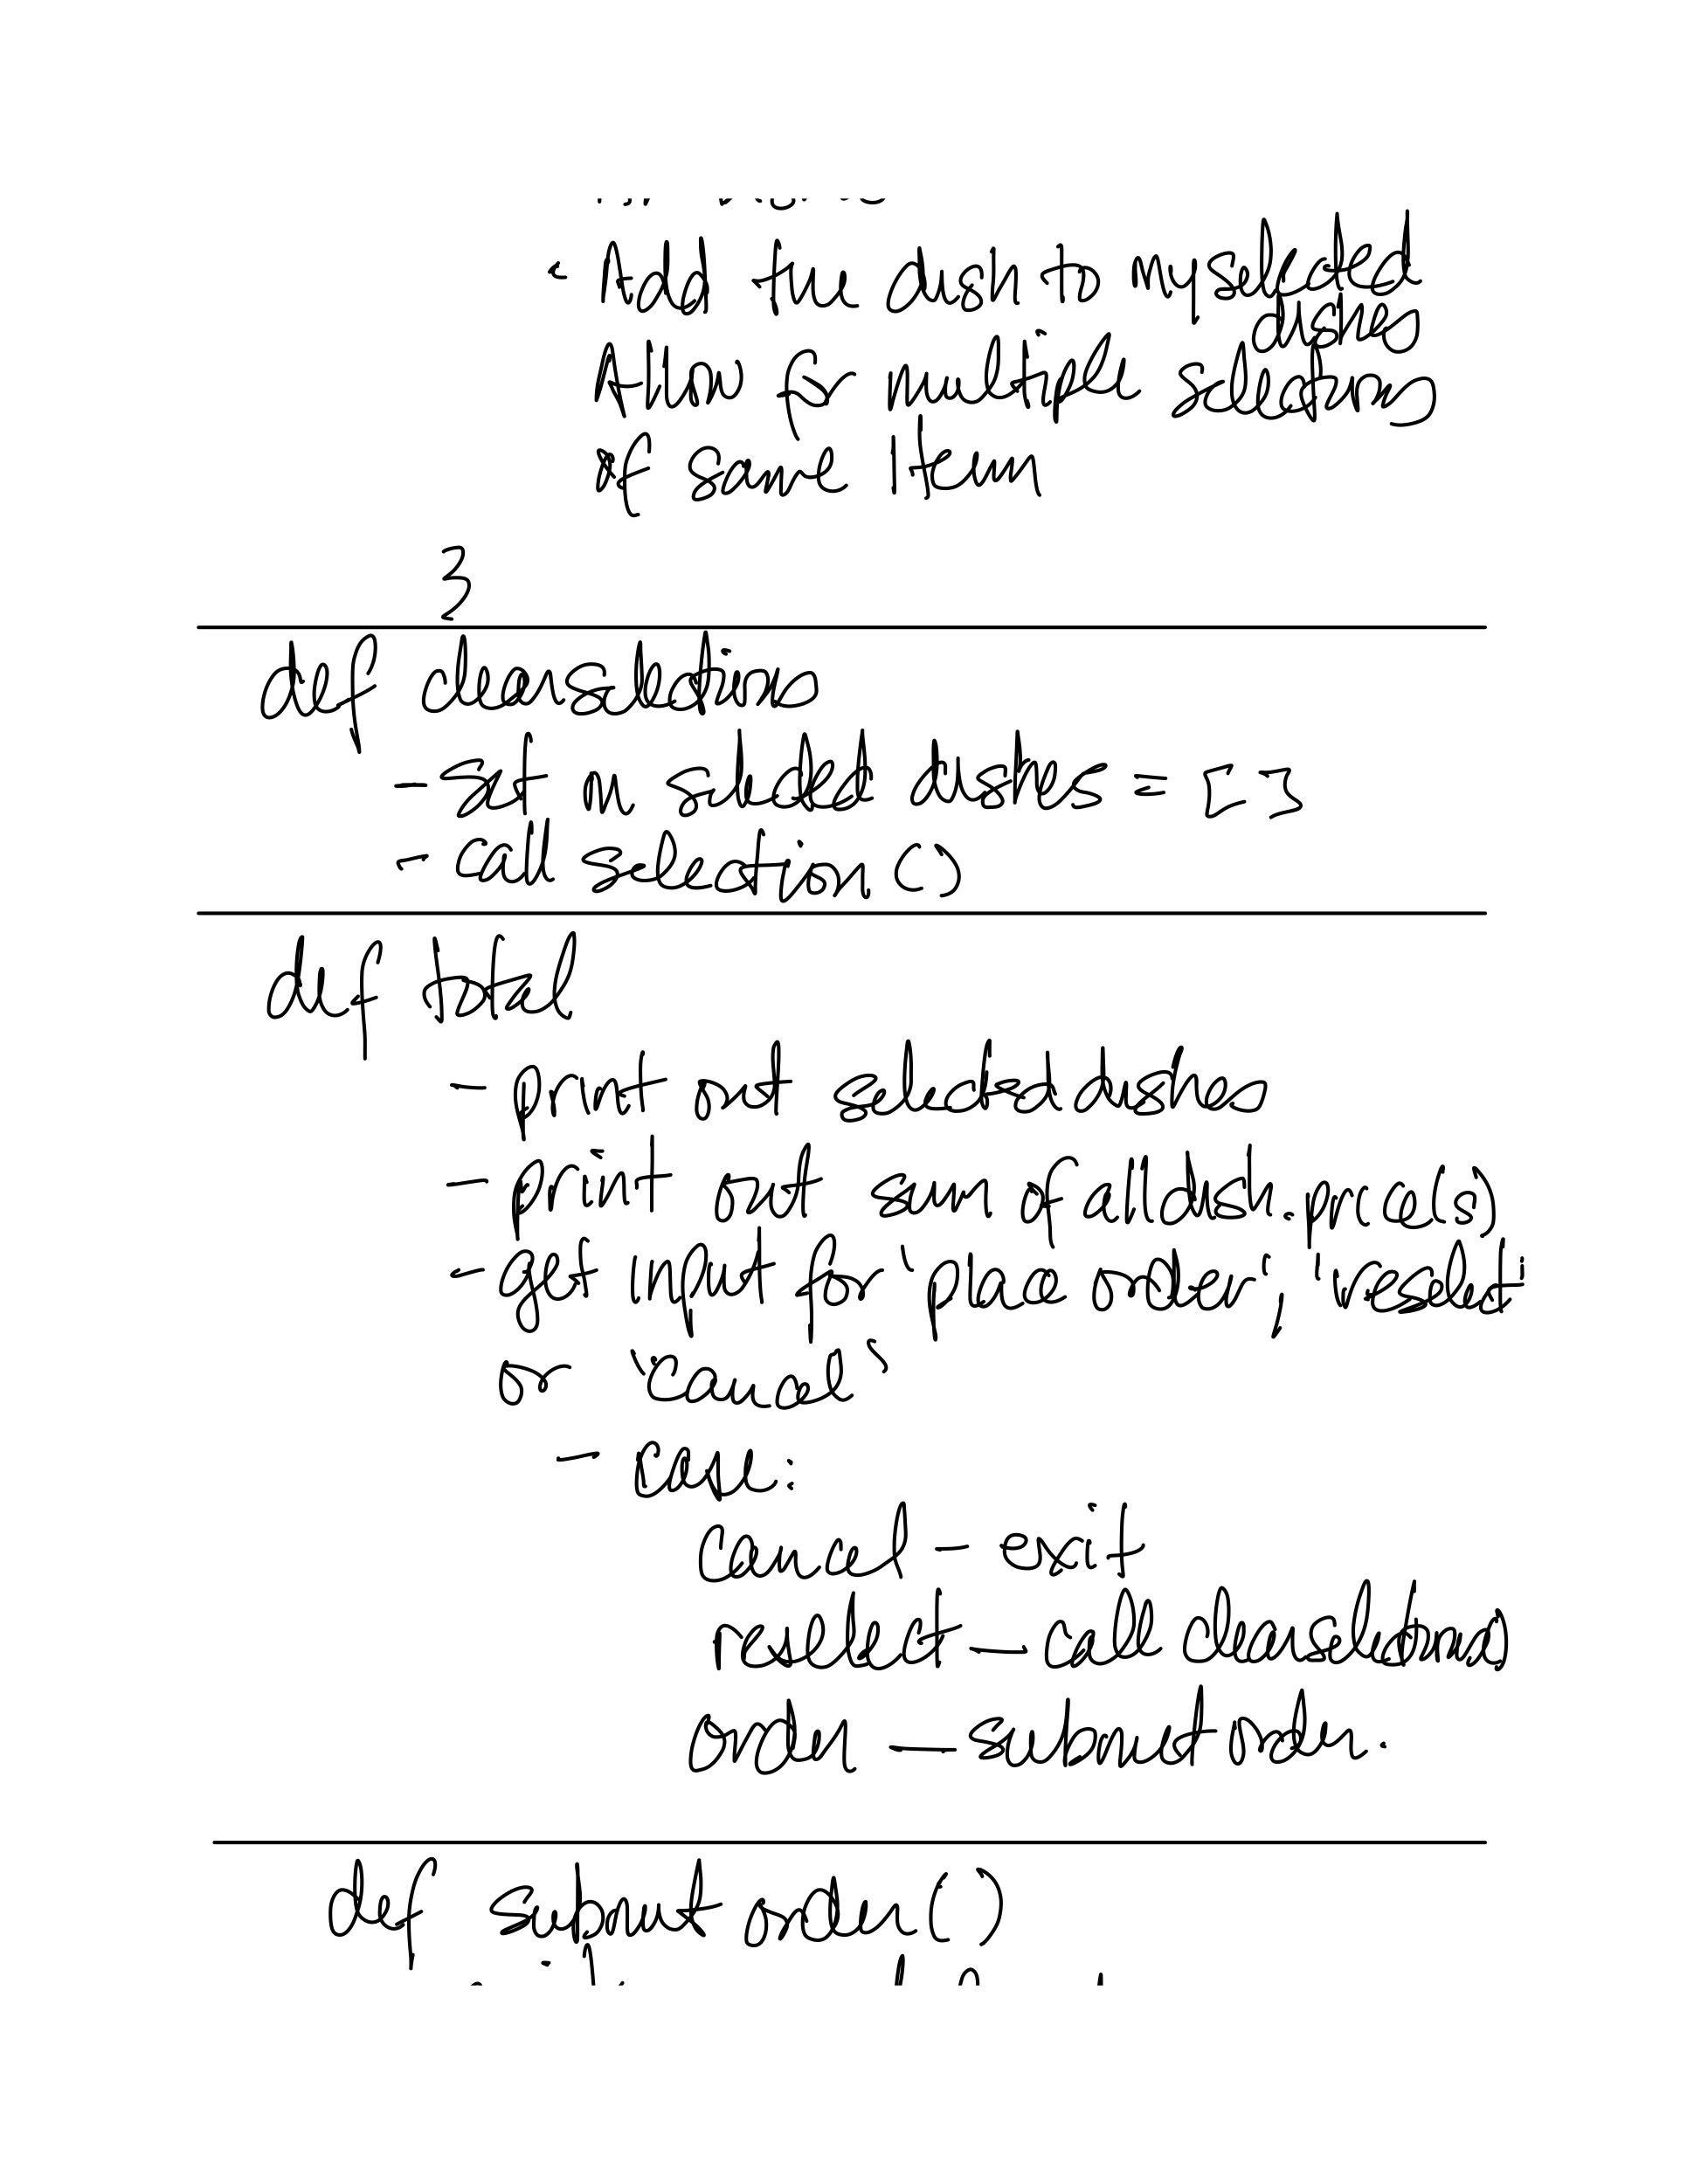 - Add the dish to my selected
dishes
Allow for multiple selections
of same item
3
def clearselections
- set m selected dishes = [ ]
- call selection ()
def total
- print out selected dishes
- print out sum of all dish.price(s)
- get input for 'place order', 'reselect'
or 'cancel'
- case:
cancel - exit
reselect - call clearselections
order - submit order.
def submit order ()